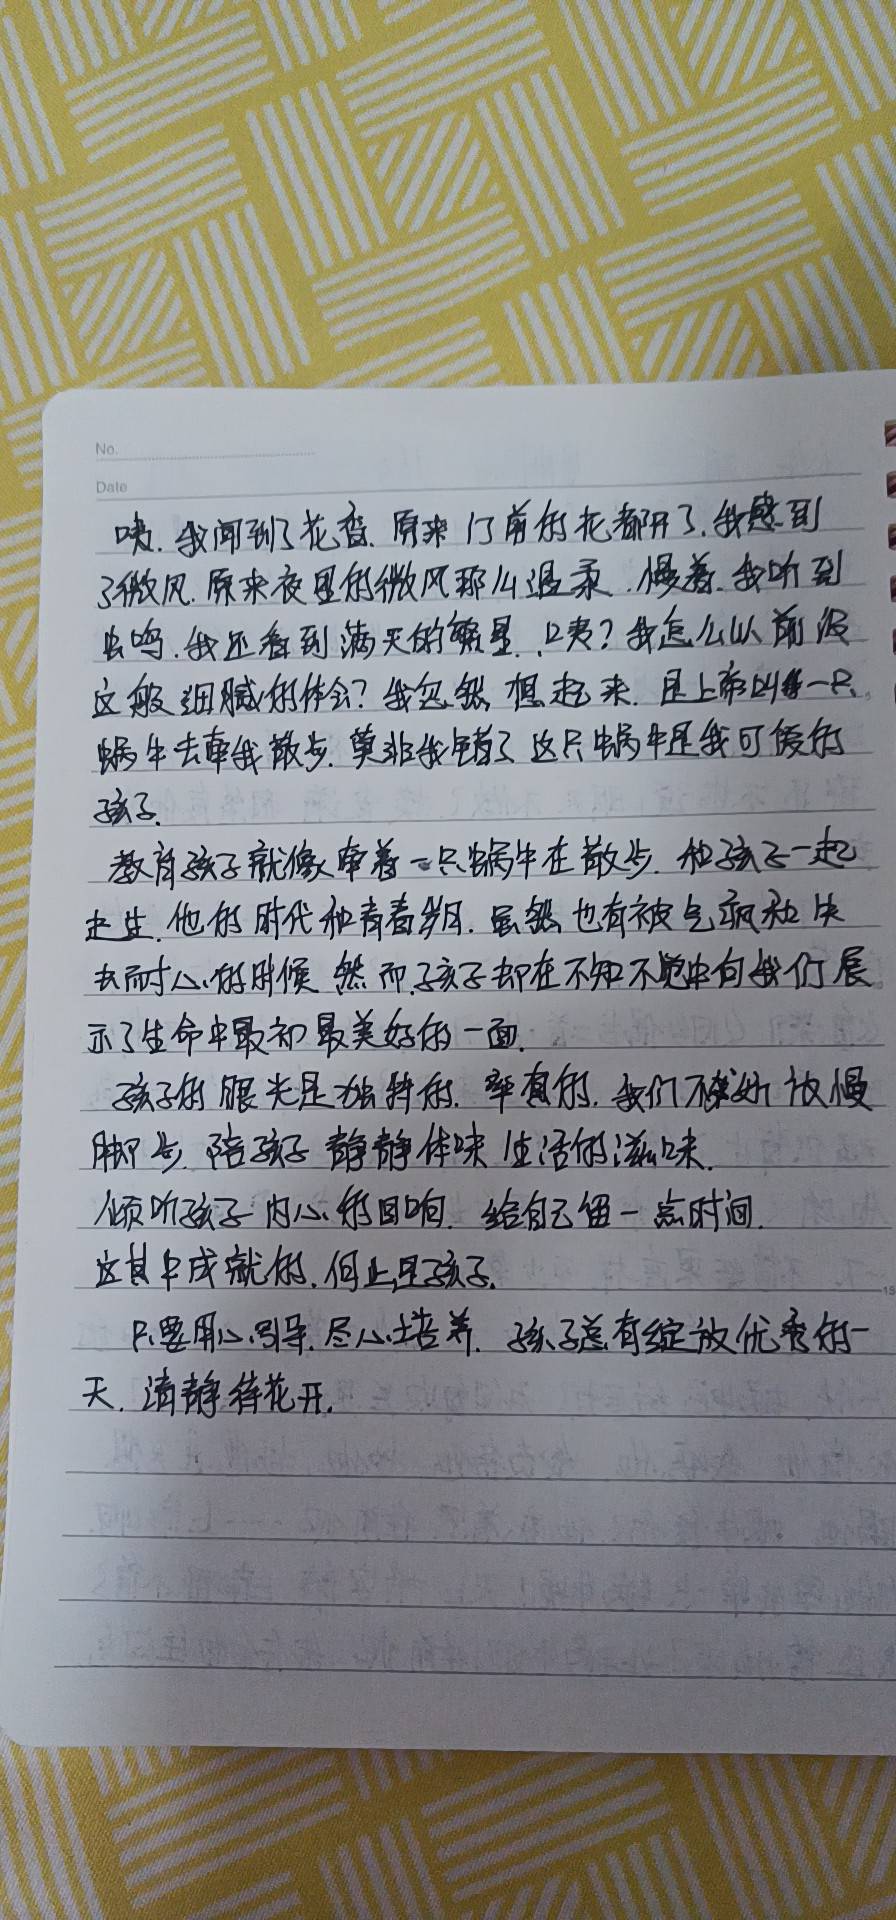 No.
Date
咦.我闻到了花香.原来门前的花都开了.我感到
了微风.原来夜里的微风那么温柔.慢着.我听到
虫鸣.我还看到满天的繁星.咦?我怎么以前没
这般细腻的体会?我忽然想起来.是上帝叫一只
蜗牛去牵我散步.莫非我错了这只蜗牛是我可爱的
孩子.
教育孩子就像牵着一只蜗牛在散步.和孩子一起
走过.他的时代和青春岁月.虽然也有被气疯和失
去耐心的时候然而.孩子却在不知不觉中向我们展
示了生命中最初最美好的一面.
孩子的眼光是独特的.率真的.我们不妨放慢
脚步.陪孩子静静体味生活的滋味.
倾听孩子内心的回响.给自己留一点时间.
这其中成就的.何止是孩子.
只要用心引导.尽心培养.孩子总有绽放优秀的一
天.请静待花开.
15